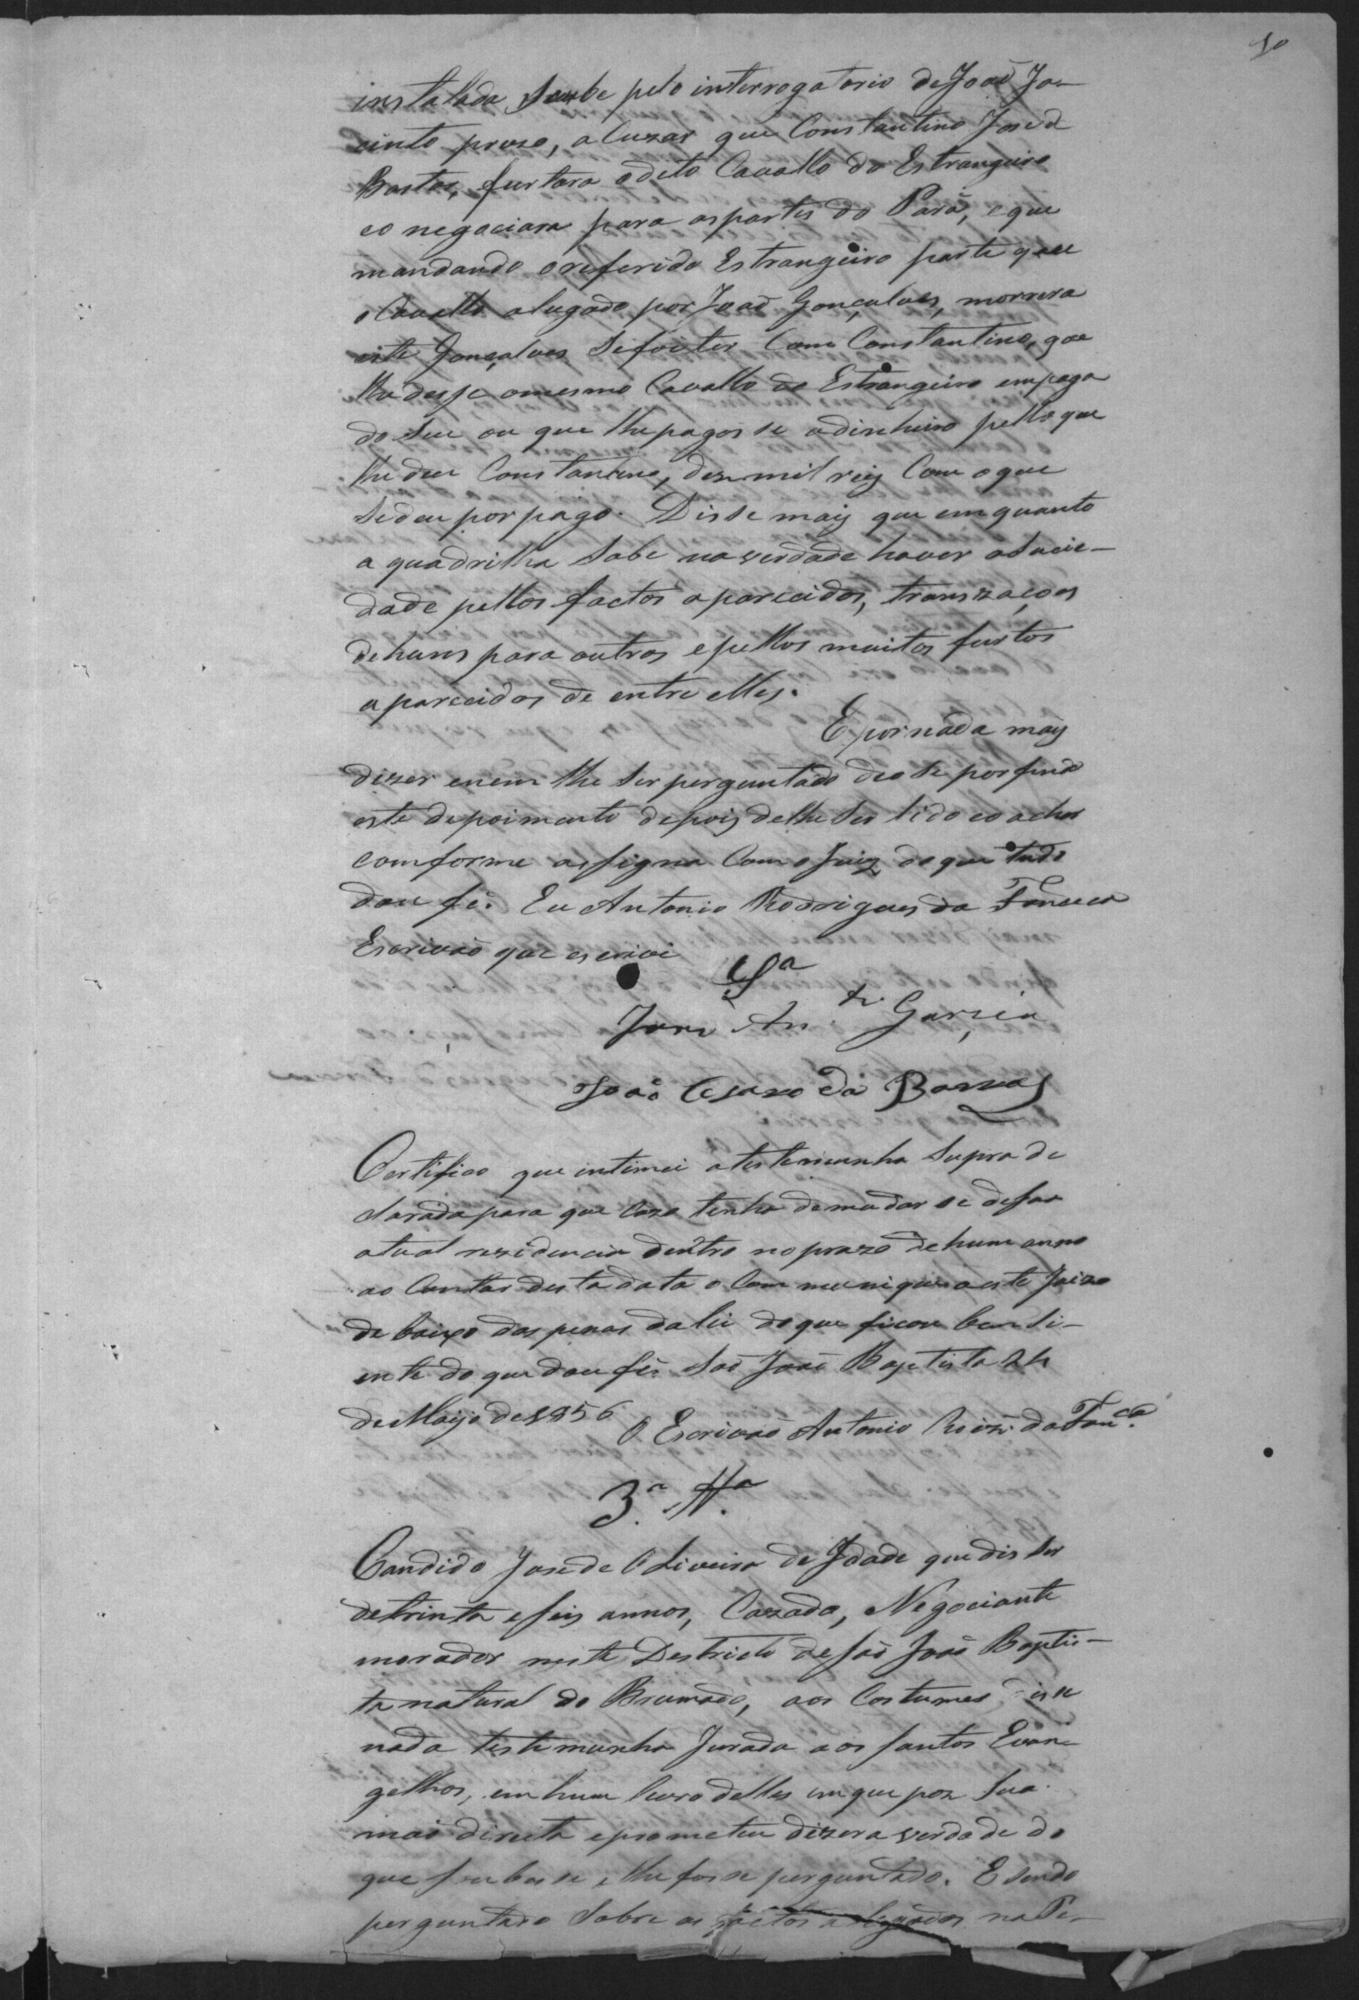 10
instalada soube pelo interrogatorio de João Ja-
cinto prezo, acuzar que Constantino José d
Bastos, furtara o dito Cavallo do Estrangeiro
eo negociara para aspartes do Pará, eque
mandando oreferido Estrangeiro parte que
o Cavallo alugado por João Gonçalves, morrera
este Gonçalves se foi ter Com Constantino, que
lhe desse omesmo Cavallo do Estrangeiro empaga
do seu ou que lhe pagasse adinheiro pello que
lhe deu Constantino, dez mil reis Com oque
sedeu por pago. Disse mais que emquanto
a quadrilha Sabe naverdade haver asocie-
dade pellos factos aparecidos, tranzaçoes
dehuns para outros epellos muitos furtos
aparecidos de entre elles.
E por nada mais
dizer enem lhe ser perguntado deo se por findo
este depoimento depois delhe ser lido eo achar
comforme assigna Com o Juiz do que tudo
dou fé. Eu Antonio Rodrigues da Fonseca
Escrivão que escrivi
Sª
José An.to Garcia
João Cezario da Barros
Certifico que intimei atestemunha Supra de
clarada para que Cazo tenha demudar se desua
atual rezidencia dentro noprazo dehum anno
ao Contar desta data o Communique aeste Juizo
debaixo das penas dalei doque ficou bem Si-
ente do que dou fé. São João Baptista 24
de Maijo de 1856
O Escrivão Antonio Roiz. da Fon.ca
3.ª Tt.ª
Candido José de Oliveira de Idade que dis ser
detrinta eseis annos, Cazado, Negociante
morador neste Destricto de São João Baptis-
ta natural do Brumado, aos Costumes disse
nada testemunha Jurada aos Santos Evan-
gelhos, em hum livro delles emque poz Sua
mão direita eprometeu dizer a verdade do
que soubesse, e lhe fosse perguntado. E sendo
perguntado Sobre os factos alegados na Pe-